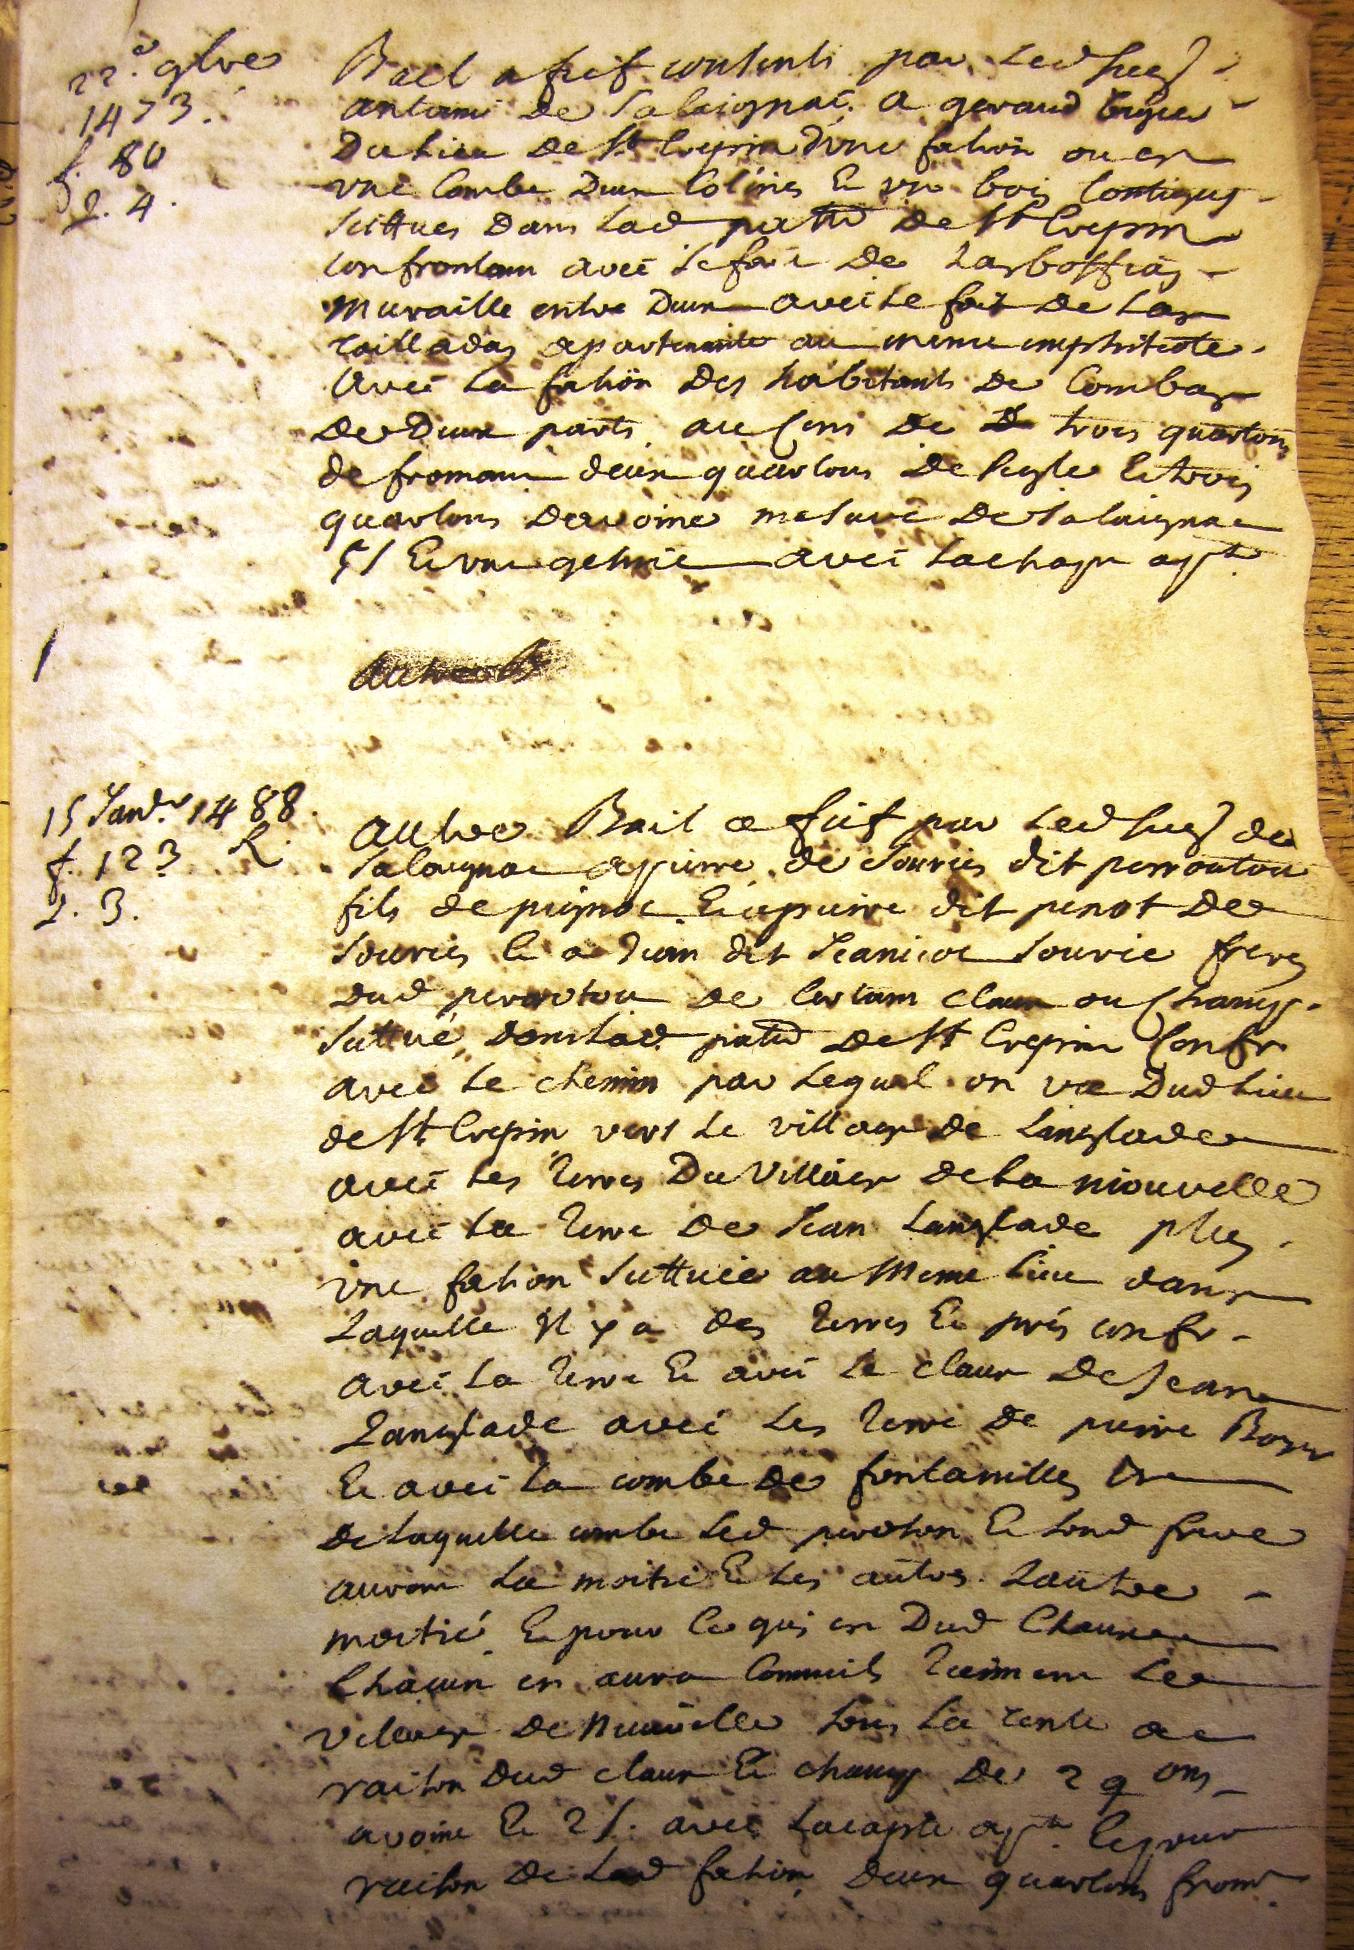 22.e 9bre
1473.
f. 80
L. 4.
Bail a fief consenti par led sieur
antoine de Salaignac a geraud
Du lieu de St Crepin d'une faison ou est
une Combe Deux Colines Et un bois Contigus
scittues dans lad parr de St Crepin
confrontant avec le fait De Lasbossias
muraille entre Deux avec le fait de Las
tailladas apartenante au meme emphiteote
avec la faison des habitants de Combas
de Deux parts au Cens de trois quartons
de fromant deux quartons de segle Et trois
quartons davoine mesure de Salaignac
5 s Et une geline avec lachapte apt
autre
15 Janv. 1488.
f. 123 R.
L. 3.
autre Bail a fief par led sieur de
Salaignac a pierre de Souries dit perrouton
fils de Et a pierre dit penot de
Souries Et a Jean dit Jeanicot Sourie freres
dud perroutou de Certain claux ou Champ
scittué dans lad parr de St Crepin Confr
avec le chemin par lequel on va Dud lieu
de St Crepin vers le village de Langlade
avec les terres Du Village de la niouvelle
avec la terre de Jean Langlade plus
une faison scittuée au meme lieu dans
Laquelle il y a des terres Et prés confr
avec la terre Et avec le claux de Jean
Langlade avec les terre de pierre
Et avec la combe de fontanilles
De laquelle combe led peroton Et sond frere
auront la moitié Et les autres Lautre
moitié Et pour Ce qui est Dud Claux
Chacun en aura Comme ils tiennent Le
Village de niouvelle sous la rente a
raison dud claux Et champ de 2 q ons
avoine Et 2 s. avec lacapte apt Et pour
raison de lad faison deux quartons from